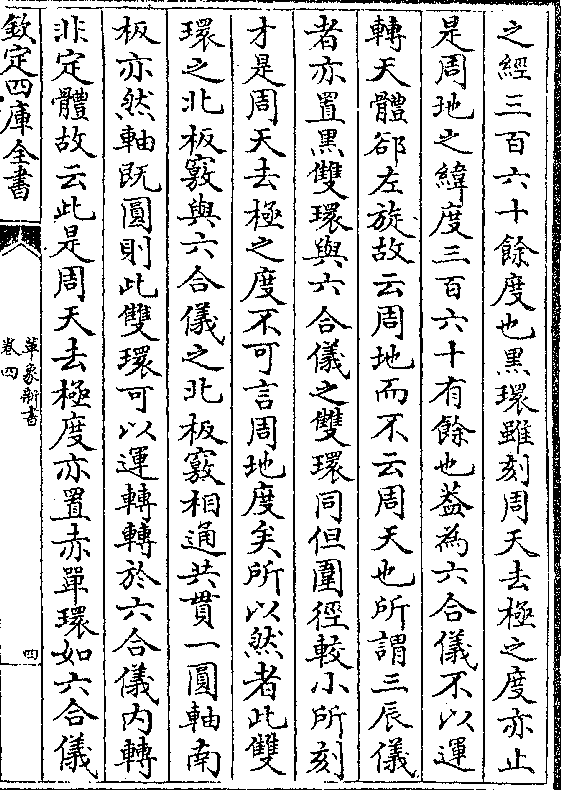 之經三百六十餘度也黒環雖刻周天去極之度亦止
是周地之緯度三百六十有餘也葢為六合儀不以運
轉天體郤左旋故云周地而不云周天也所謂三辰儀
者亦置黒雙環與六合儀之雙環同但圍徑較小所刻
才是周天去極之度不可言周地度矣所以然者此雙
環之北板竅與六合儀之北板竅相通共貫一圓軸南
板亦然軸既圓則此雙環可以運轉轉於六合儀内轉
非定體故云此是周天去極度亦置赤單環如六合儀
欽定四庫全書
革象新書
卷四
四